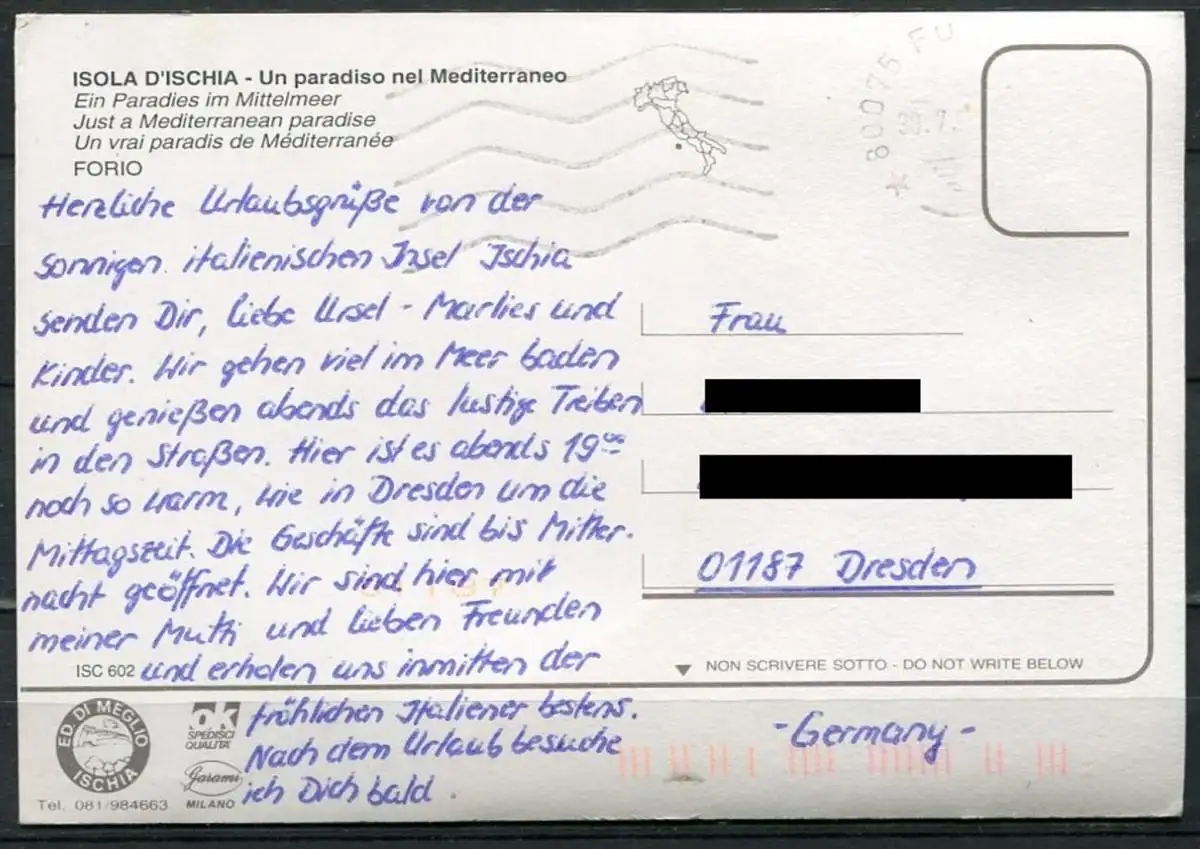 ISOLA D'ISCHIA - Un paradiso nel Mediterraneo
Ein Paradies im Mittelmeer
Just a Mediterranean paradise
Un vrai paradis de Méditerranée
FORIO
Herzliche Urlaubsgrüße von der
sonnigen italienischen Insel Ischia
senden Dir, liebe Ursel - Marlies und
Kinder. Wir gehen viel im Meer baden
und genießen abends das lustige Treiben
in den Straßen. Hier ist es abends 19⁰⁰
noch so warm, wie in Dresden um die
Mittagszeit. Die Geschäfte sind bis Mitter-
nacht geöffnet. Wir sind hier mit
meiner Mutti und lieben Freunden
und erholen uns inmitten der
fröhlichen Italiener bestens.
Nach dem Urlaub besuche
ich Dich bald.
ISC 602
ED. DI MEGLIO
ISCHIA
Tel. 081/984663
ok
SPEDISCI
QUALITA'
Garami
MILANO
* 80075 FO
30.7.
Frau
01187 Dresden
NON SCRIVERE SOTTO - DO NOT WRITE BELOW
- Germany -